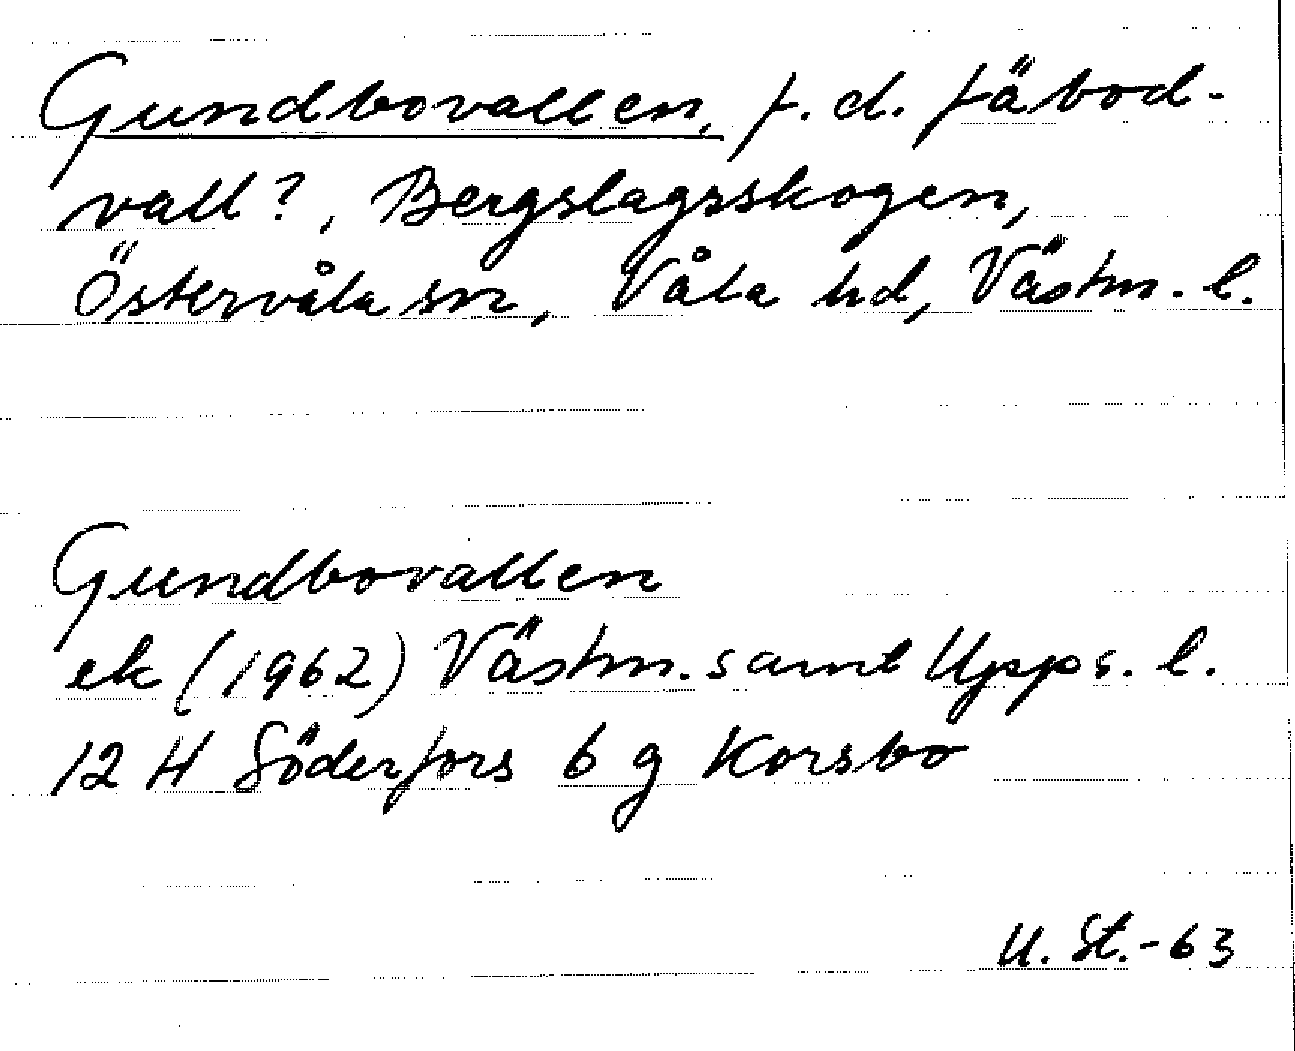 Gundbovallen, f. d. fäbod-
vall?, Bergslagsskogen,
Östervåla sn, Våla hd, Västm. l.
Gundbovallen
ek (1962) Västm. samt Upps. l.
12 H Söderfors 6 g Korsbo
U. St.-63